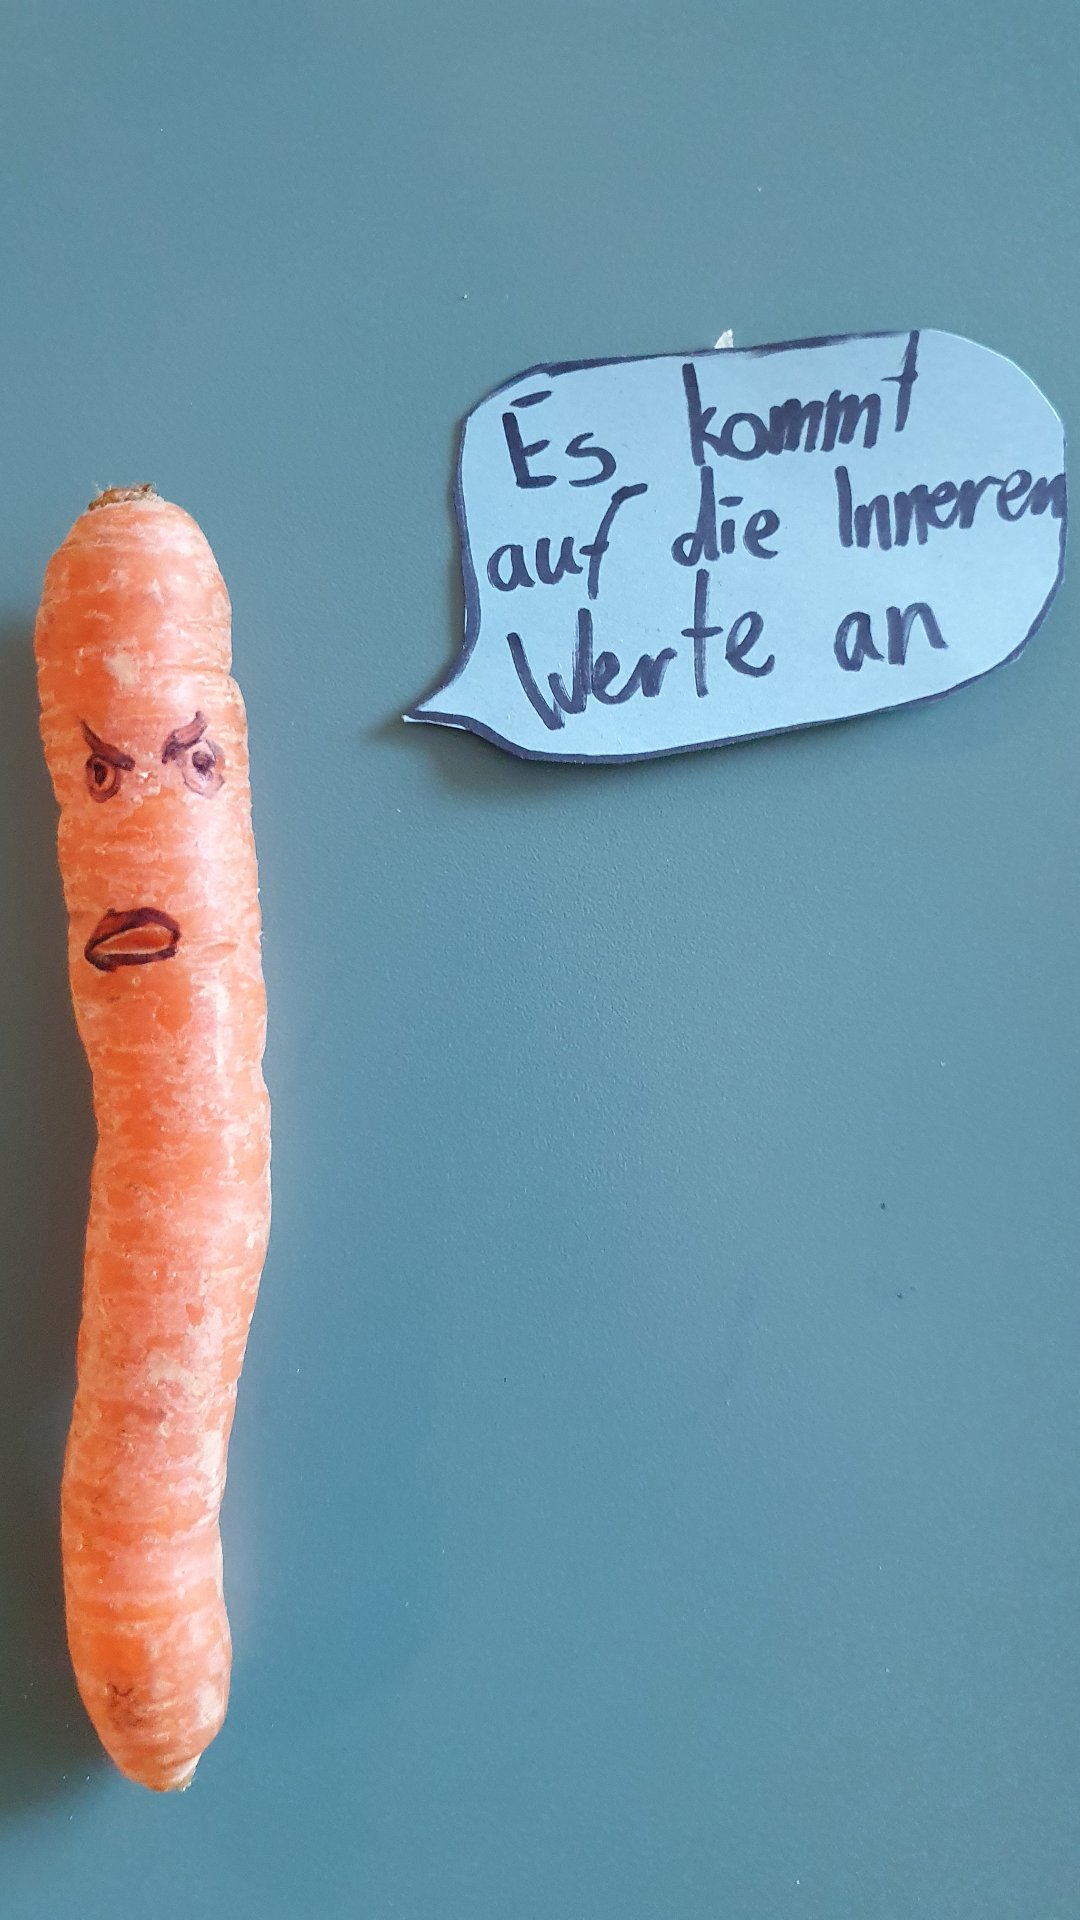 Es kommt
auf die Inneren
Werte an